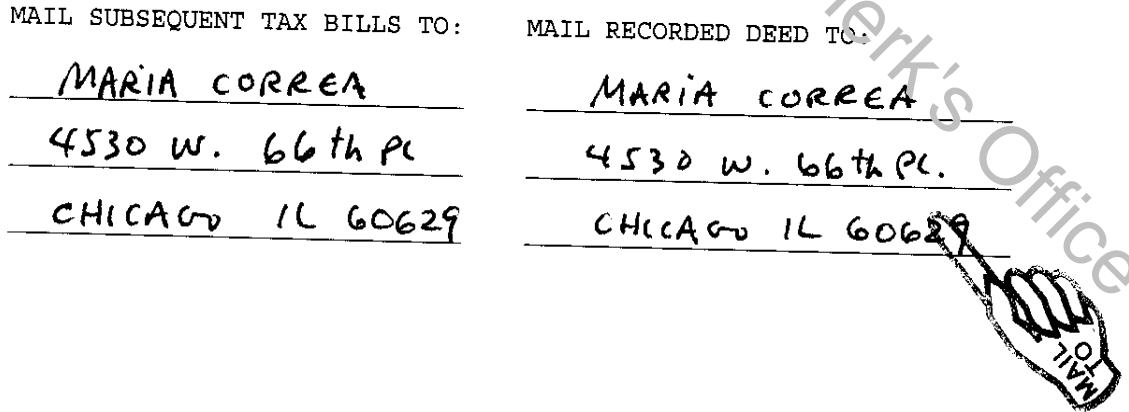 MAIL SUBSEQUENT TAX BILLS TO:
MARIA CORREA
4530 W. 66th PL
CHICAGO IL 60629
MAIL RECORDED DEED TO:
MARIA CORREA
4530 W. 66th PL.
CHICAGO IL 60629
MAIL
TO
Clerk's Office